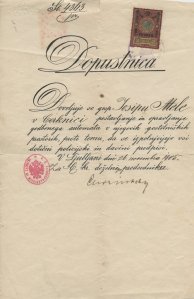 Št. 4343
pr.
Dopustnica
Dovoljuje se gosp. Josipu Mele
v Cerknici postavljanje in uporabljanje
godbenega avtomata v njegovih gostilniških
prostorih proti temu, da se izpolnjujejo vsi
dotični policijski in davčni predpisi.
V Ljubljani dne 26. novembra 1905.
Za c. kr. deželnega predsednika: